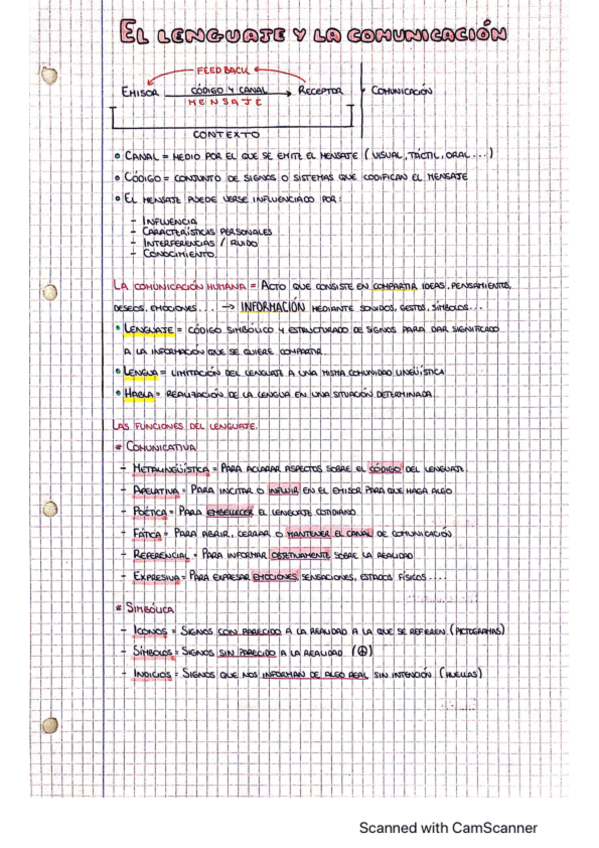 EL LENGUAJE Y LA COMUNICACIÓN
FEEDBACK
EMISOR CÓDIGO Y CANAL RECEPTOR COMUNICACIÓN
MENSAJE
CONTEXTO
• CANAL = MEDIO POR EL QUE SE EMITE EL MENSAJE (VISUAL, TÁCTIL, ORAL...)
• CÓDIGO = CONJUNTO DE SIGNOS O SISTEMAS QUE CODIFICAN EL MENSAJE
• EL MENSAJE PUEDE VERSE INFLUENCIADO POR:
- INFLUENCIA
- CARACTERÍSTICAS PERSONALES
- INTERFERENCIAS / RUIDO
- CONOCIMIENTO
LA COMUNICACIÓN HUMANA = ACTO QUE CONSISTE EN COMPARTIR IDEAS, PENSAMIENTOS,
DESEOS, EMOCIONES... → INFORMACIÓN MEDIANTE SONIDOS, GESTOS, SÍMBOLOS...
• LENGUAJE = CÓDIGO SIMBÓLICO Y ESTRUCTURADO DE SIGNOS PARA DAR SIGNIFICADO
A LA INFORMACIÓN QUE SE QUIERE COMPARTIR.
• LENGUA = LIMITACIÓN DEL LENGUAJE A UNA MISMA COMUNIDAD LINGÜÍSTICA
• HABLA = REALIZACIÓN DE LA LENGUA EN UNA SITUACIÓN DETERMINADA.
LAS FUNCIONES DEL LENGUAJE.
* COMUNICATIVA
- METALINGÜÍSTICA = PARA ACLARAR ASPECTOS SOBRE EL CÓDIGO DEL LENGUAJE.
- APELATIVA = PARA INCITAR O INFLUIR EN EL EMISOR PARA QUE HAGA ALGO
- POÉTICA = PARA EMBELLECER EL LENGUAJE COTIDIANO
- FÁTICA = PARA ABRIR, CERRAR O MANTENER EL CANAL DE COMUNICACIÓN
- REFERENCIAL = PARA INFORMAR OBJETIVAMENTE SOBRE LA REALIDAD
- EXPRESIVA = PARA EXPRESAR EMOCIONES, SENSACIONES, ESTADOS FÍSICOS....
* SIMBÓLICA
- ICONOS = SIGNOS CON PARECIDO A LA REALIDAD A LA QUE SE REFIEREN. (PICTOGRAMAS)
- SÍMBOLOS = SIGNOS SIN PARECIDO A LA REALIDAD (☮)
- INDICIOS = SIGNOS QUE NOS INFORMAN DE ALGO REAL SIN INTENCIÓN (HUELLAS)
Scanned with CamScanner